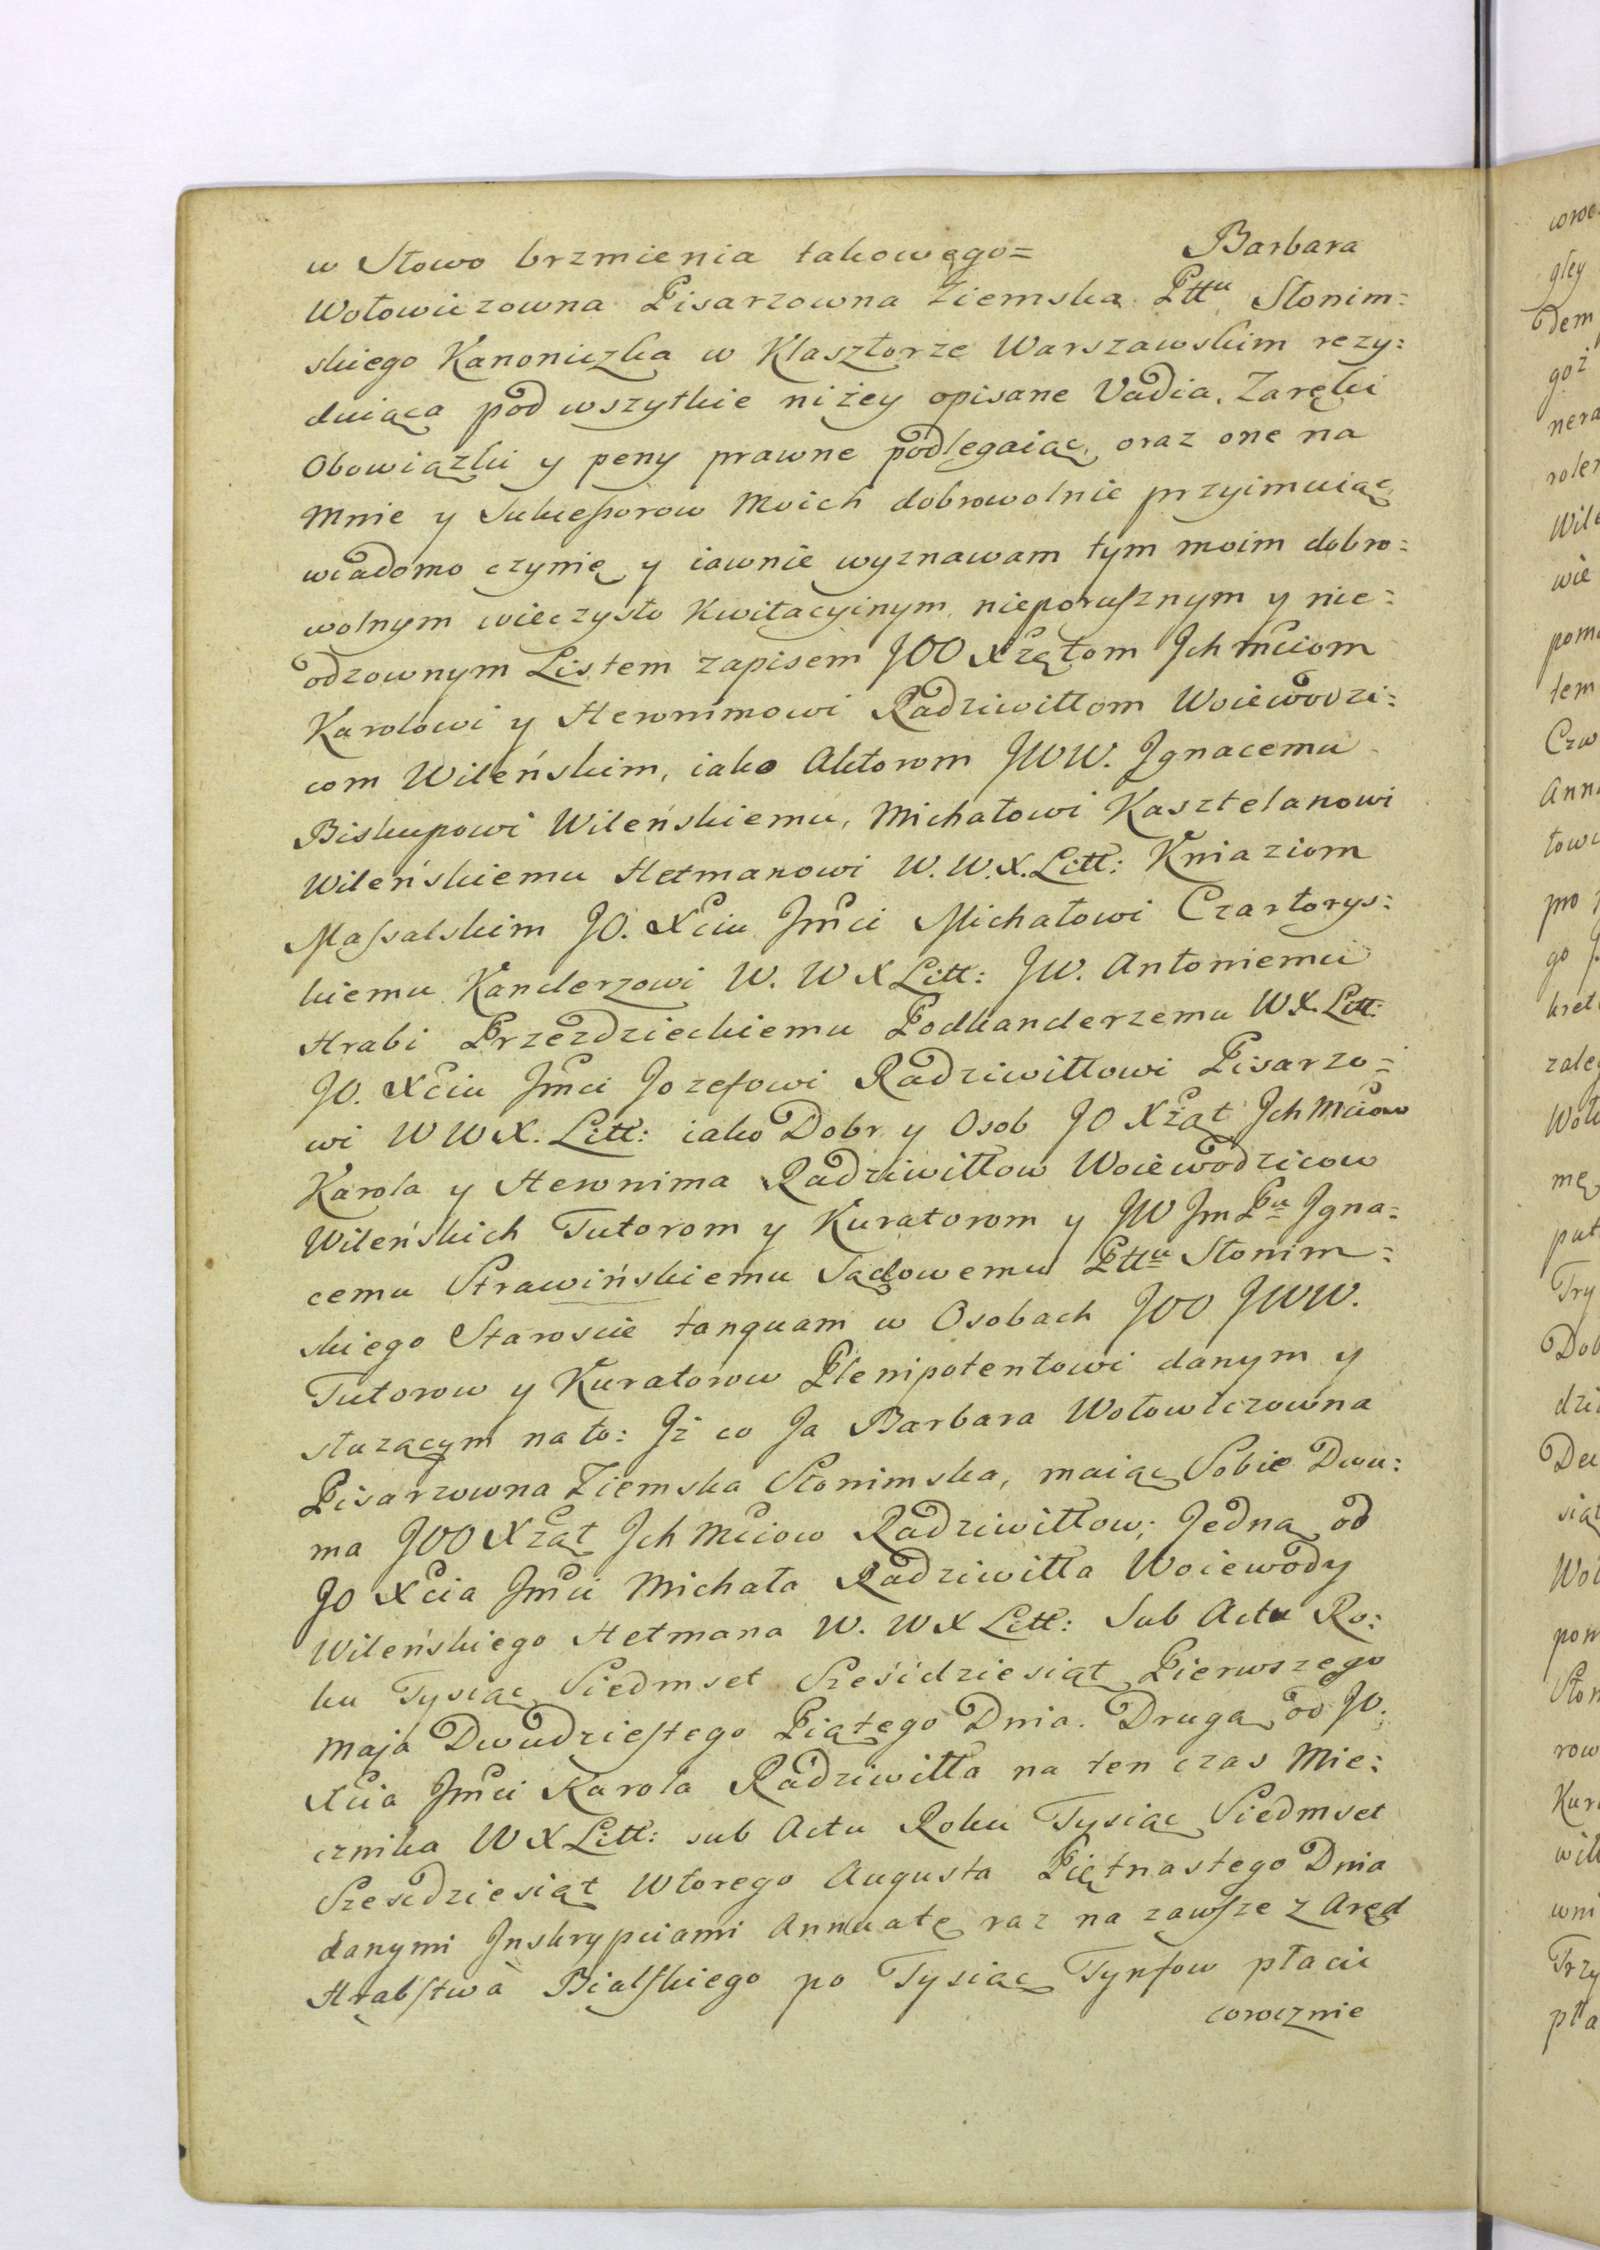 w Słowo brzmienia takowego= Barbara
Wołowiczowna Pisarzowna Ziemska Pttu Słonim=
skiego Kanoniczka w Klasztorze Warszawskim rezy=
duiąca pod wszytkie niżey opisane Vadia, Zaręki
Obowiązki y peny prawne podlegaiąc, oraz one na
Mnie y Sukceſsorow Moich dobrowolnie przyimuiąc
wiadomo czynię y iawnie wyznawam tym moim dobro=
wolnym wieczysto Kwitacyinym nieporuſznym y nie=
odzownym Listem zapisem JOO Xżętom Jch mciom
Karolowi y Heronimowi Radziwiłłom Woiewodzi=
com Wileńskim, iako Aktorom JWW. Jgnacemu
Biskupowi Wileńskiemu, Michałowi Kasztelanowi
Wileńskiemu Hetmanowi W. W. X. Litt: Kniaziom
Maſsalskim JO. Xciu Jmci Michałowi Czartorys=
kiemu Kanclerzowi W. W X Litt: JW. Antoniemu
Hrabi Przezdzieckiemu Podkanclerzemu W X. Litt:
JO. Xciu Jmci Jozefowi Radziwiłłowi Pisarzo=
wi W W X. Litt: iako Dobr y Osob JO Xżąt Jch Mciow
Karola y Heronima Radziwiłłow Woiewodzicow
Wileńskich Tutorom y Kuratorom y JW Jm Pu Jgna=
cemu Strawińskiemu Sądowemu Pttu Słonim=
skiego Staroscie tanquam w Osobach JOO JWW.
Tutorow y Kuratorow Plenipotentowi danym y
słuzącym na to: Jż co Ja Barbara Wołowiczowna
Pisarzowna Ziemska Słonimska, maiąc Sobie Dwu=
ma JOO Xżąt Jch Mciow Radziwiłłow; Jedną od
JO Xcia Jmci Michała Radziwiłła Woiewody
Wileńskiego Hetmana W. W X Litt: Sub Actu Ro=
ku Tysiąc Siedmset Sześćdziesiąt Pierwszego
Maja Dwudzieſtego Piątego Dnia. Drugą od JO.
Xcia Jmci Karola Radziwiłła na ten czas Mie=
cznika W X Litt: sub Actu Roku Tysiąc Siedmset
Szesćdziesiąt Wtorego Augusta Piętnastego Dnia
danymi Jnskrypciami Annuatę raz na zawſze z Aręd
Hrabſtwa Bialſkiego po Tysiąc Tynfow płacić
corocznie